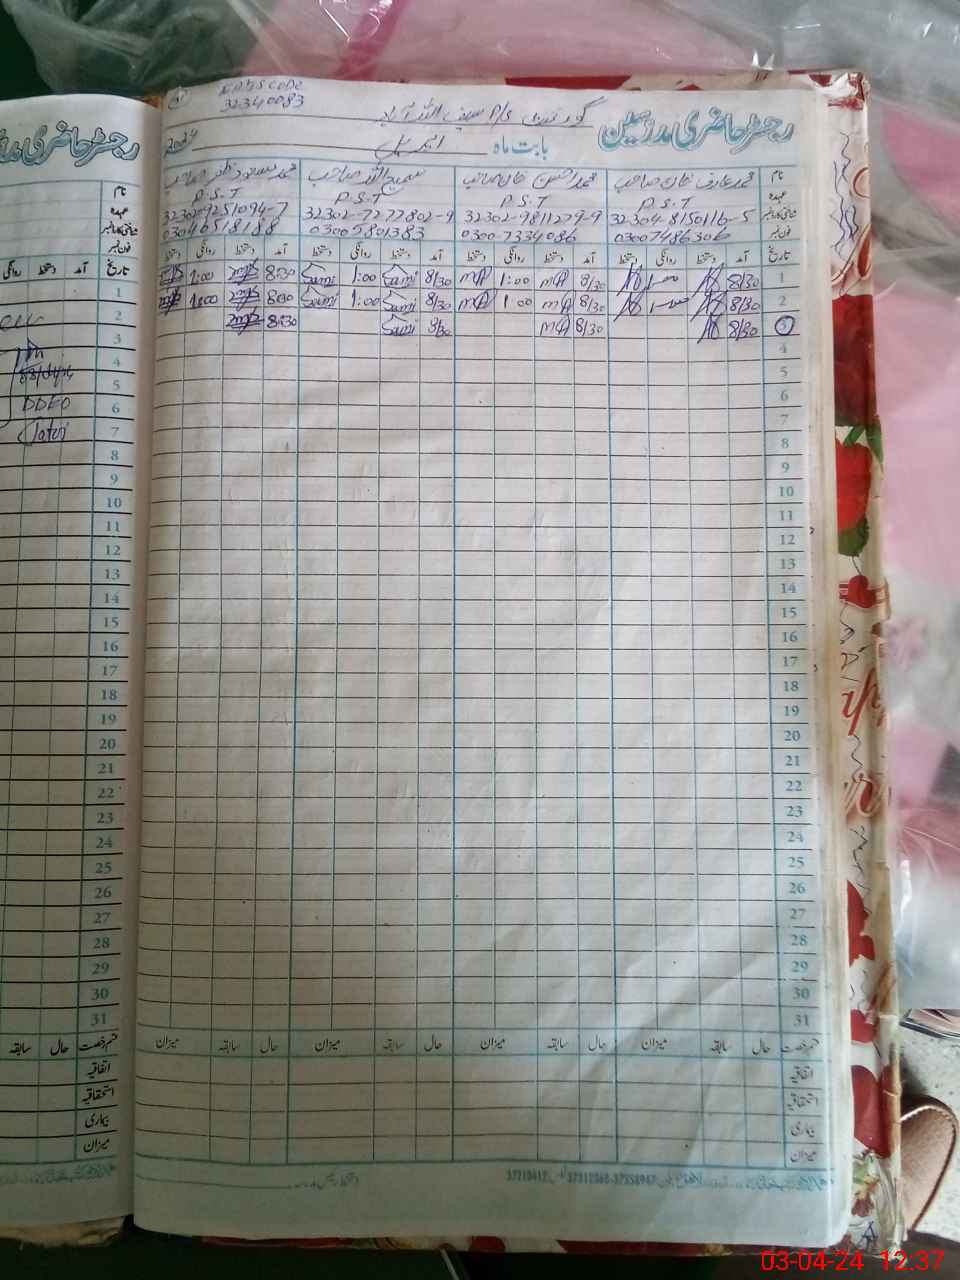 EMIS CODE
32340083
رجسٹر حاضری مدرسین
گورنمنٹ P/S سیف اللہ آباد
بابت ماہ اپریل 2024
نام محمد عارف خان صاحب محمد احسن خان صاحب سمیع اللہ صاحب
عہدہ P.S.T P.S.T P.S.T P.S.T
شناختی کارڈ نمبر 32304-8150116-5 32302-9811279-9 32302-7277802-9 32302-9251094-7
فون نمبر 03007486306 0300-7334086 03005801383 03046518188
تاریخ آمد دستخط روانگی دستخط آمد دستخط روانگی دستخط آمد دستخط روانگی دستخط آمد دستخط روانگی دستخط
1 8/30 8/30 MA 1:00 MA 8/30 Sami 1:00 Sami 8:30 1:00
2 8/30 8/30 MA 1:00 MA 8/30 Sami 1:00 Sami 8:30 1:00
3 8/30 8/30 MA 8/30 Sami 8:30
4
5
6
7
8
9
10
11
12
13
14
15
16
17
18
19
20
21
22
23
24
25
26
27
28
29
30
31
قسم رخصت حال سابقہ میزان حال سابقہ میزان حال سابقہ میزان حال سابقہ میزان
اتفاقیہ
استحقاقیہ
بیماری
میزان
رجسٹر حاضری
آمد دستخط روانگی
1
2
3
4
5
6
7
8
9
10
11
12
13
14
15
16
17
18
19
20
21
22
23
24
25
26
27
28
29
30
31
03/04/24
DDEO
قسم رخصت حال سابقہ
اتفاقیہ
استحقاقیہ
بیماری
میزان
03-04-24 12:37